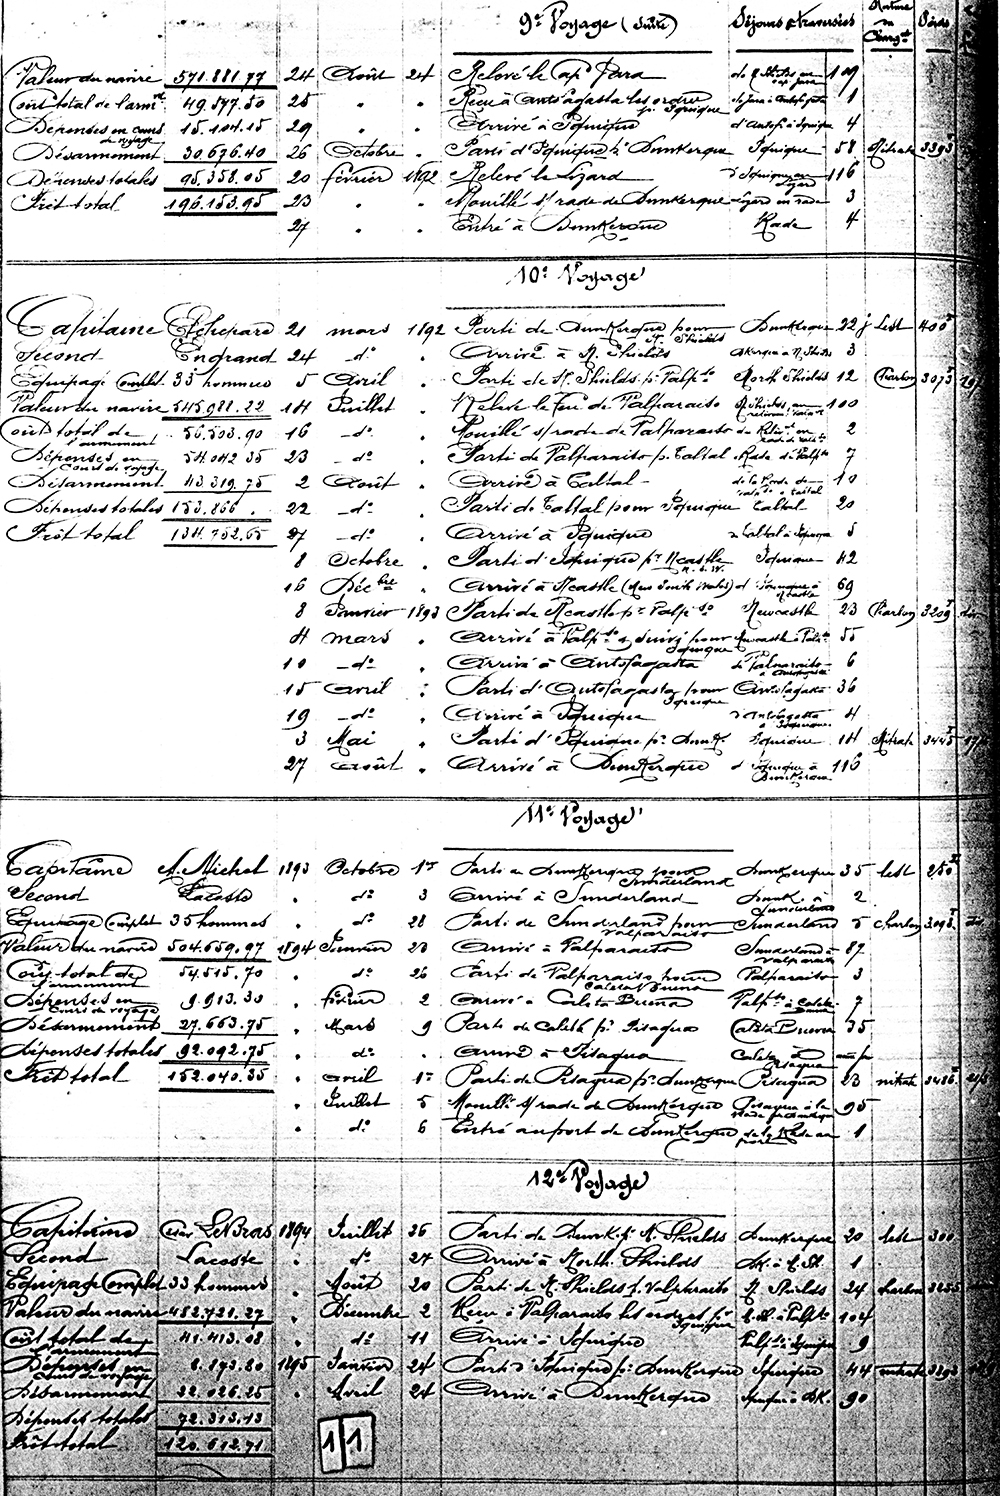 9e Voyage (Suite) Séjours & traversées Nature du Charg.t Poids
Valeur du navire 571.881.77 24 Août 24 Relevé le Cap Jara 109
Coût total de l'arm.t 49.577.50 25 " " Reçu à Antofagasta les ordres pr Iquique de Jara à Antofagasta 1
Dépenses en cours de voyage 15.104.15 29 " " Arrivé à Iquique d'Antof. à Iquique 4
Désarmement 30.676.40 26 Octobre " Parti d'Iquique pr Dunkerque Iquique 58 Nitrate 3393T
Dépenses totales 95.358.05 20 février 1892 Relevé le Lizard d'Iquique au Lizard 116
Frêt total 196.153.95 23 " " Mouillé s/ rade de Dunkerque Lizard en rade 3
27 " " Entré à Dunkerque Rade 4
10e Voyage
Capitaine Etchepare 21 mars 1892 Parti de Dunkerque pour N. Shields Dunkerque 22 j Lest 400T
Second Engrand 24 -do- " Arrivé à N. Shields Dkerque à N. Shields 3
Equipage Complet 33 hommes 5 Avril " Parti de N. Shields pr Valp.so North Shields 12 Charbon 3073T
Valeur du navire 545.981.22 14 Juillet " Relevé le Feu de Valparaiso 100
Coût total de l'armement 56.503.90 16 -do- " Mouillé s/ rade de Valparaiso 2
Dépenses en Cours de voyage 54.042.35 23 -do- " Parti de Valparaiso pr Taltal Rade de Valp.so 7
Désarmement 43.319.75 2 Août " Arrivé à Taltal - de la Rade de Valp.so à Taltal 10
Dépenses totales 153.866 . 22 -do- " Parti de Taltal pour Iquique Taltal 20
Frêt total 134.752.65 27 -do- " Arrivé à Iquique de Taltal à Iquique 5
8 Octobre " Parti d'Iquique pr Ncastle N.S.W. Iquique 42
16 Déc.bre " Arrivé à Ncastle (New South Wales) d'Iquique à Ncastle 69
8 Janvier 1893 Parti de Ncastle pr Valp.so Newcastle 23 Charbon 3209T
4 mars " Arrivé à Valp.so & suivi pour Iquique Newcastle à Valp.so 55
10 -do- " Arrivé à Antofagasta de Valparaiso à Antofagasta 6
15 Avril " Parti d'Antofagasta pour Iquique Antofagasta 36
19 -do- " Arrivé à Iquique d'Antofagasta à Iquique 4
3 Mai " Parti d'Iquique pr Dunk. Iquique 14 Nitrate 3445T
27 Août " Arrivé à Dunkerque d'Iquique à Dunkerque 116
11e Voyage
Capitaine A. Michel 1893 Octobre 1er Parti de Dunkerque pour Sunderland Dunkerque 35 lest 250T
Second Lacoste do 3 Arrivé à Sunderland Dunk. à Sunderland 2
Equipage Complet 35 hommes " do 28 Parti de Sunderland pour Valparaiso Sunderland 5 Charbon 3098T
Valeur du navire 504.659.97 1894 Janvier 23 Arrivé à Valparaiso Sunderland à Valparaiso 87
Coût total de l'armement 54.515.70 " do 26 Parti de Valparaiso pour Caleta Buena Valparaiso 3
Dépenses en Cours de voyage 9.913.30 " février 2 Arrivé à Caleta Buena Valp.so à Caleta Buena 7
Désarmement 27.663.75 " Mars 9 Parti de Caleta pr Pisagua Caleta Buena 35
Dépenses totales 92.092.75 " do " Arrivé à Pisagua Caleta à Pisagua
Frêt total 152.040.35 " avril 1er Parti de Pisagua pr Dunkerque Pisagua 23 nitrate 3486T
" Juillet 5 Mouillé s/ rade de Dunkerque Pisagua à la rade de Dunkerque 95
" do 6 Entré au port de Dunkerque de la Rade au port 1
12e Voyage
Capitaine Le Bras 1894 Juillet 26 Parti de Dunk. pr N. Shields Dunkerque 20 lest 300
Second Lacoste " do 27 Arrivé à North Shields DK. à N. Sh. 1
Equipage Complet 33 hommes " Août 20 Parti de N. Shields pr Valparaiso N. Shields 24 charbon
Valeur du navire 482.721.27 " Décembre 2 Reçu à Valparaiso les ordres pr Iquique N. Sh. à Valp.so 104
Coût total de l'armement 41.413.08 " do 11 Arrivé à Iquique Valp.so à Iquique 9
Dépenses en Cours de voyage 8.193.80 1895 Janvier 24 Parti d'Iquique pr Dunkerque Iquique 44 nitrate 3293
Désarmement 22.026.25 " Avril 24 Arrivé à Dunkerque Iquique à DK. 90
Dépenses totales 72.313.13
Frêt total 120.612.71
11